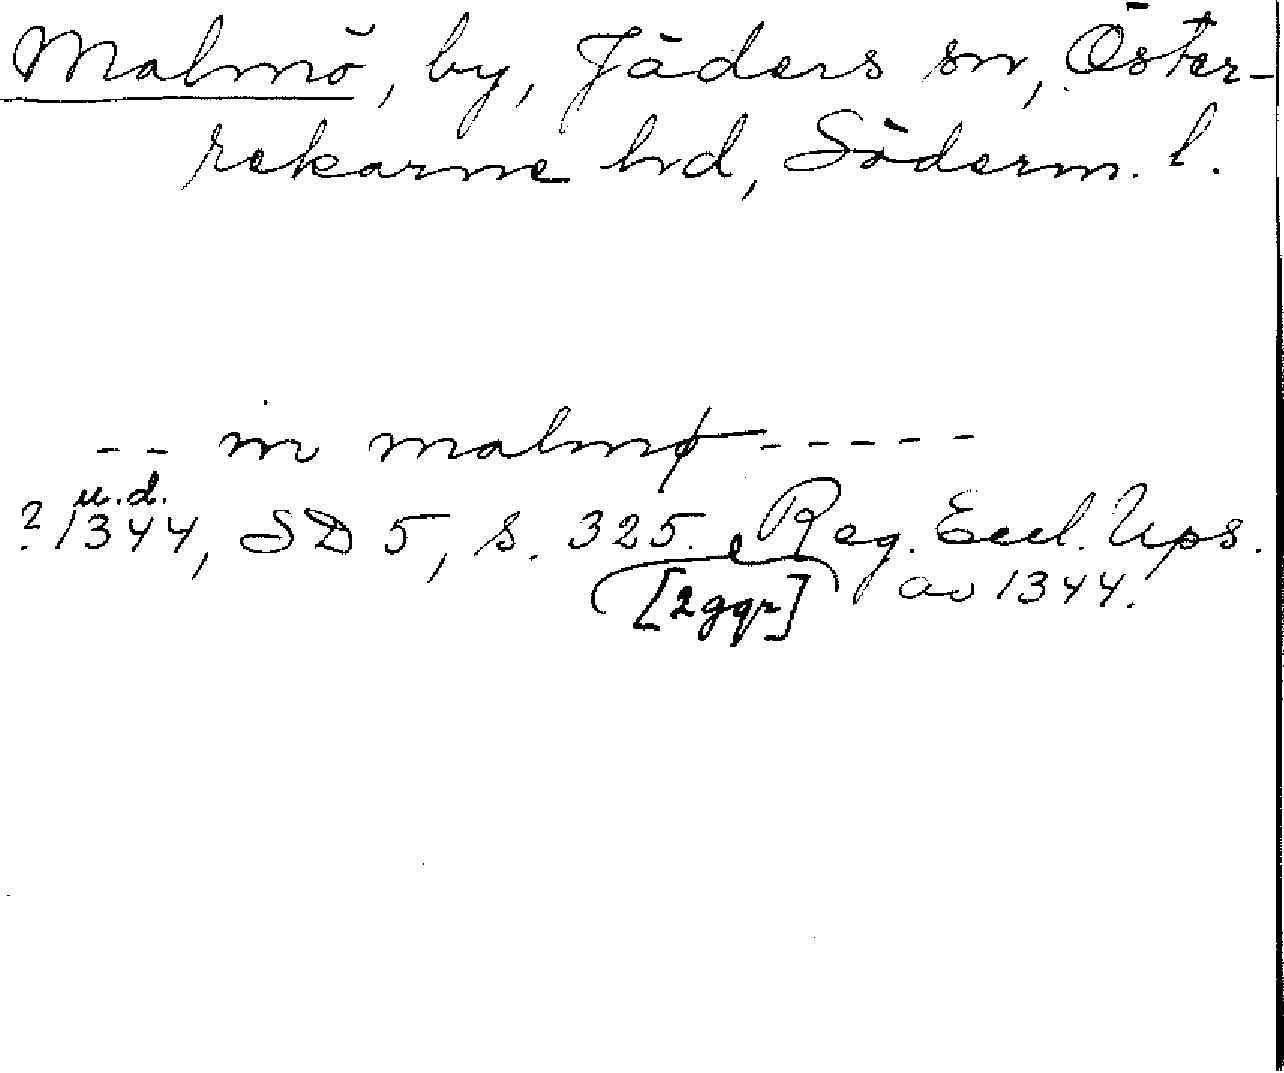 Malmö, by, Jäders sn, Öster-
rekarne hd, Söderm. l.
-- in malmø -----
u.d.
? 1344, SD 5, s. 325. Reg. Eccl. Ups.
[2 ggr] av 1344.